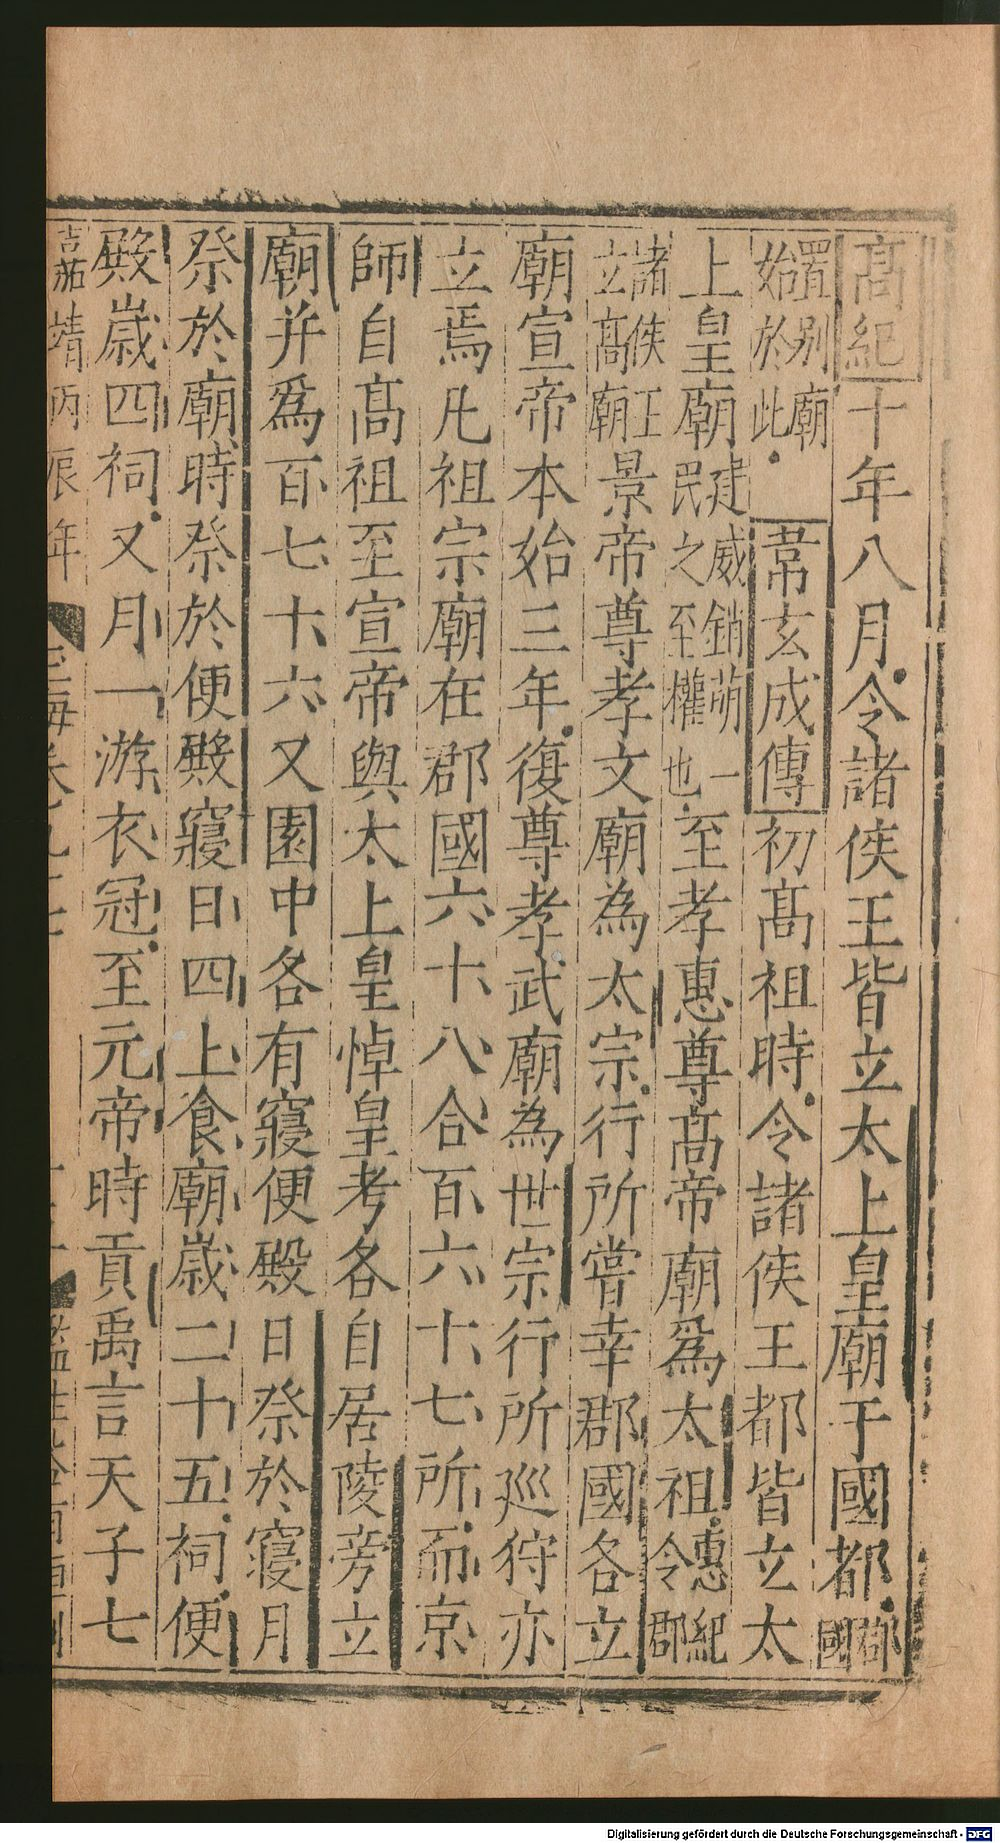 高紀十年八月令諸侯王皆立太上皇廟于國都郡國
置别廟始於此韋玄成傳初高祖時令諸侯王都皆立太
上皇廟建威銷萌一民之至權也至孝惠尊高帝廟爲太祖惠紀令郡
諸侯王立高廟景帝尊孝文廟為太宗行所嘗幸郡國各立
廟宣帝本始三年復尊孝武廟為世宗行所巡狩亦
立焉凡祖宗廟在郡國六十八合百六十七所而京
師自高祖至宣帝與太上皇悼皇考各自居陵旁立
廟并爲百七十六又園中各有寢便殿日祭於寢月
祭於廟時祭於便殿寢日四上食廟歲二十五祠便
殿歲四祠又月一游衣冠至元帝時貢禹言天子七
嘉靖丙辰年
Digitalisierung gefördert durch die Deutsche Forschungsgemeinschaft - DFG